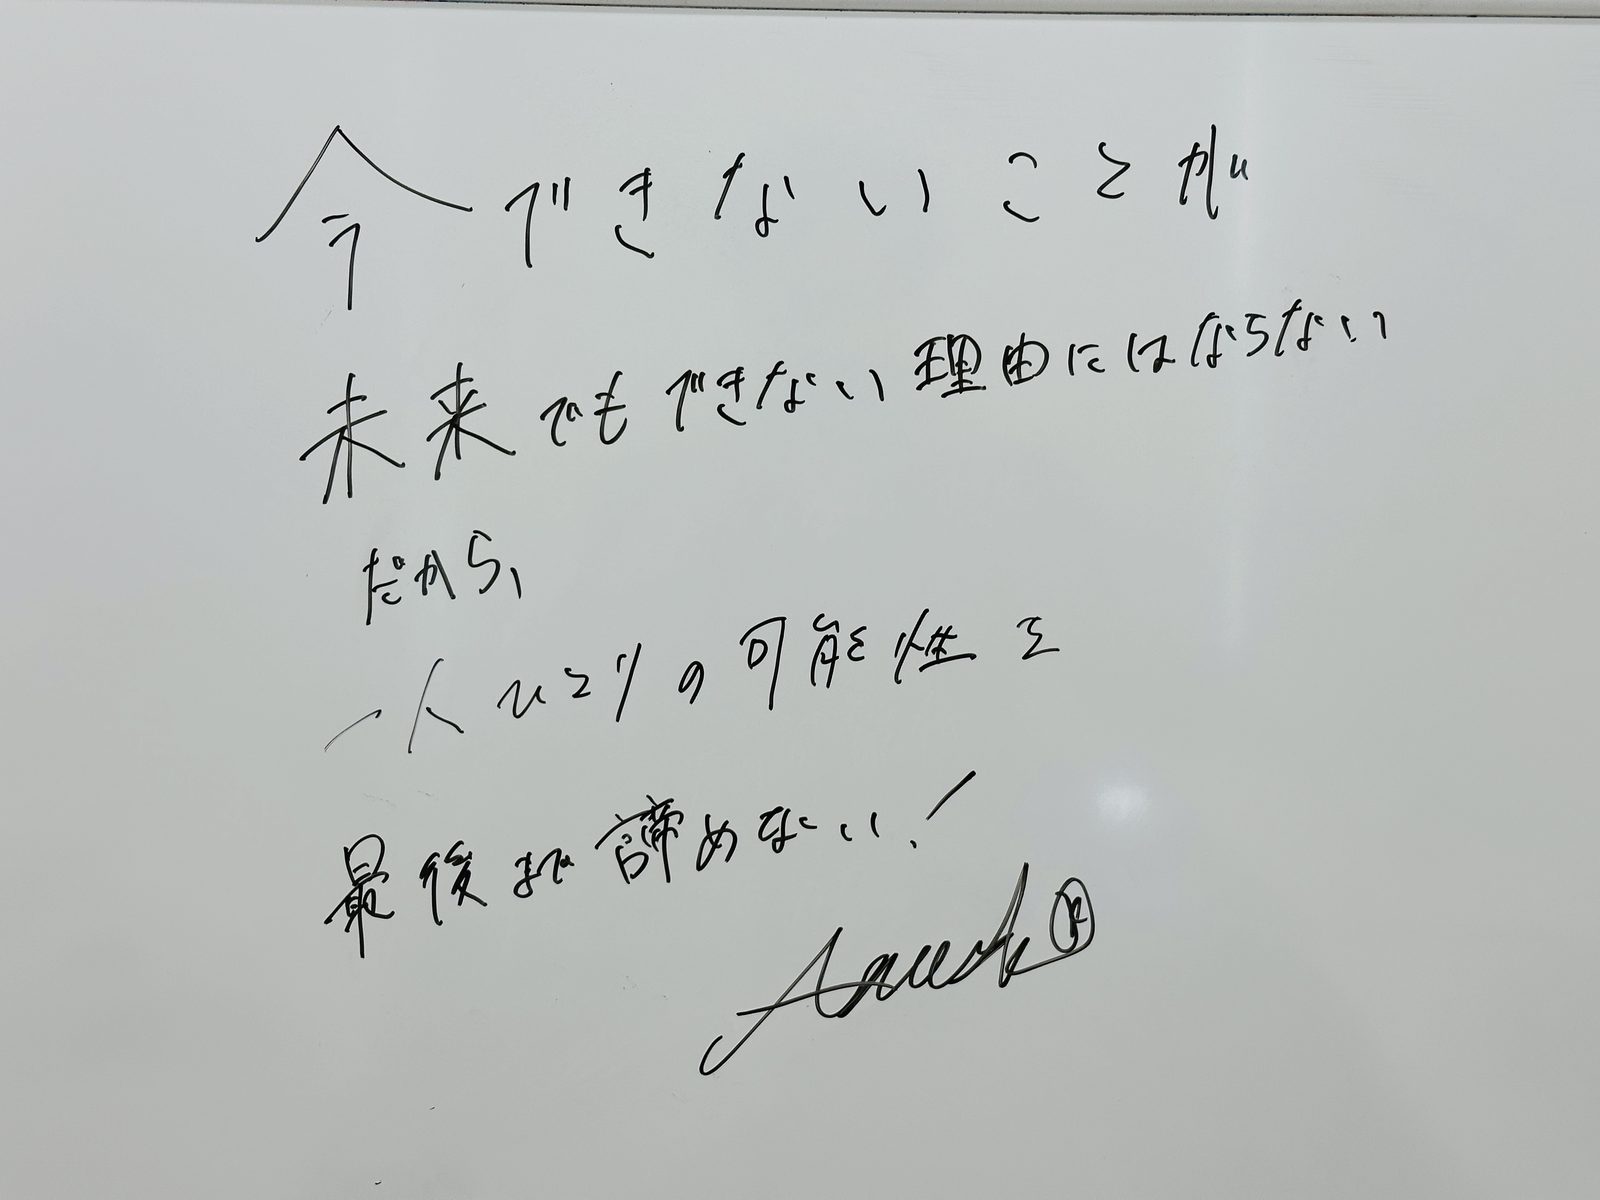 今できないことが
未来でもできない理由にはならない
だから、
一人ひとりの可能性を
最後まで諦めない！